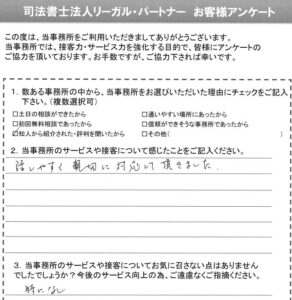 司法書士法人リーガル・パートナー　お客様アンケート
この度は、当事務所をご利用いただきましてありがとうございます。
当事務所では、接客力・サービス力を強化する目的で、皆様にアンケートの
ご協力を頂いております。お手数ですが、ご協力下されば幸いです。
1．数ある事務所の中から、当事務所をお選びいただいた理由にチェックをご記入
下さい。（複数選択可）
□土日の相談ができたから　□通いやすい場所にあったから
□初回無料相談であったから　□信頼ができそうな事務所であったから
☑知人から紹介された・評判を聞いたから　□その他（　）
2．当事務所のサービスや接客について感じたことをご記入ください。
話しやすく親切に対応して頂きました。
3．当事務所のサービスや接客についてお気に召さない点はありません
でしたでしょうか？今後のサービス向上の為、ご遠慮なくご指摘ください。
特になし